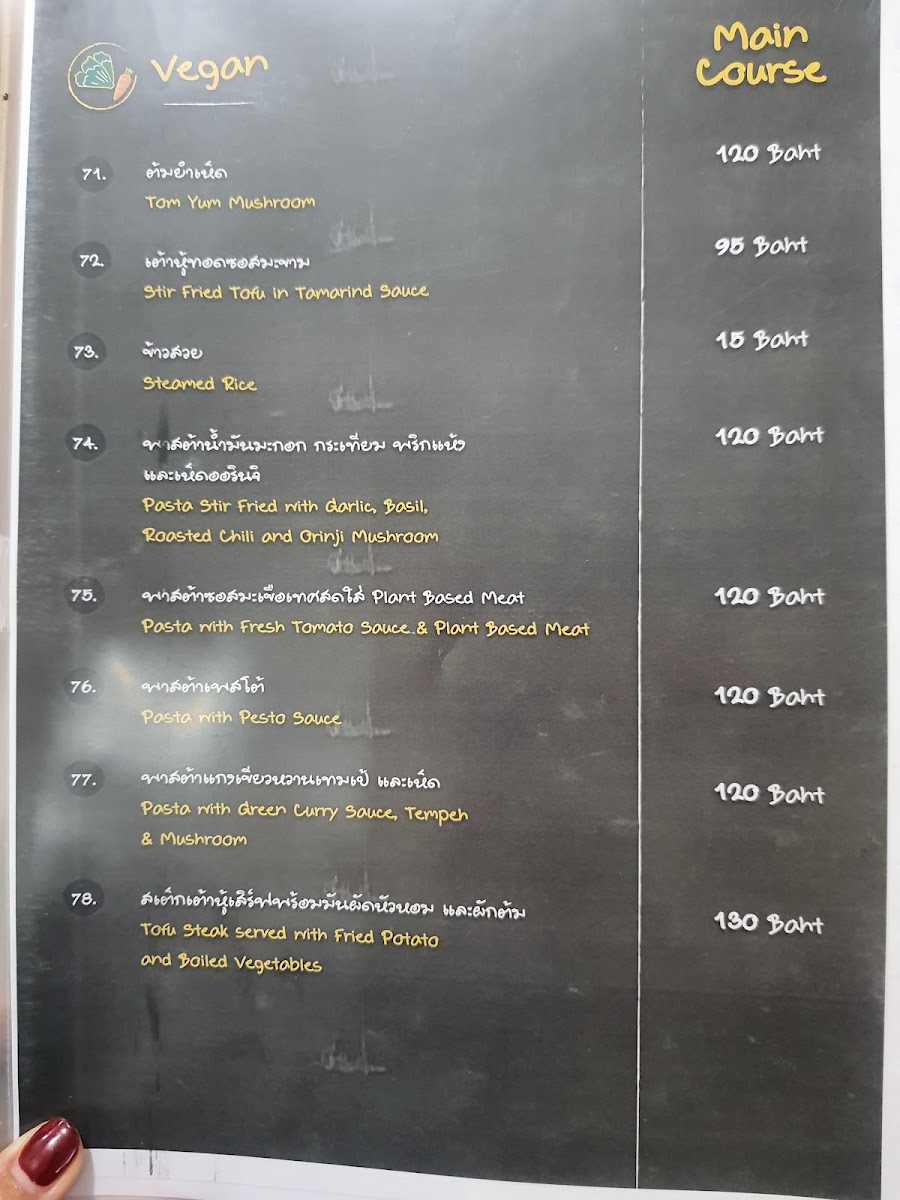 Vegan
Main
Course
71.
ต้มยำเห็ด
120 Baht
Tom Yum Mushroom
72.
เต้าหู้ทอดซอสมะขาม
95 Baht
Stir Fried Tofu in Tamarind Sauce
73.
ข้าวสวย
15 Baht
Steamed Rice
74.
พาสต้าน้ำมันมะกอก กระเทียม พริกแห้ง
120 Baht
และเห็ดออรินจิ
Pasta Stir Fried with Garlic, Basil,
Roasted Chili and Orinji Mushroom
75.
พาสต้าซอสมะเขือเทศสดใส่ Plant Based Meat
120 Baht
Pasta with Fresh Tomato Sauce & Plant Based Meat
76.
พาสต้าเพสโต้
120 Baht
Pasta with Pesto Sauce
77.
พาสต้าแกงเขียวหวานเทมเป้ และเห็ด
120 Baht
Pasta with Green Curry Sauce, Tempeh
& Mushroom
78.
สเต็กเต้าหู้เสิร์ฟพร้อมมันผัดหัวหอม และผักต้ม
130 Baht
Tofu Steak served with Fried Potato
and Boiled Vegetables